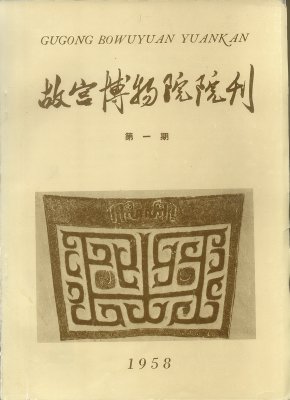 GUGONG BOWUYUAN YUANKAN
故宫博物院院刊
第一期
1958